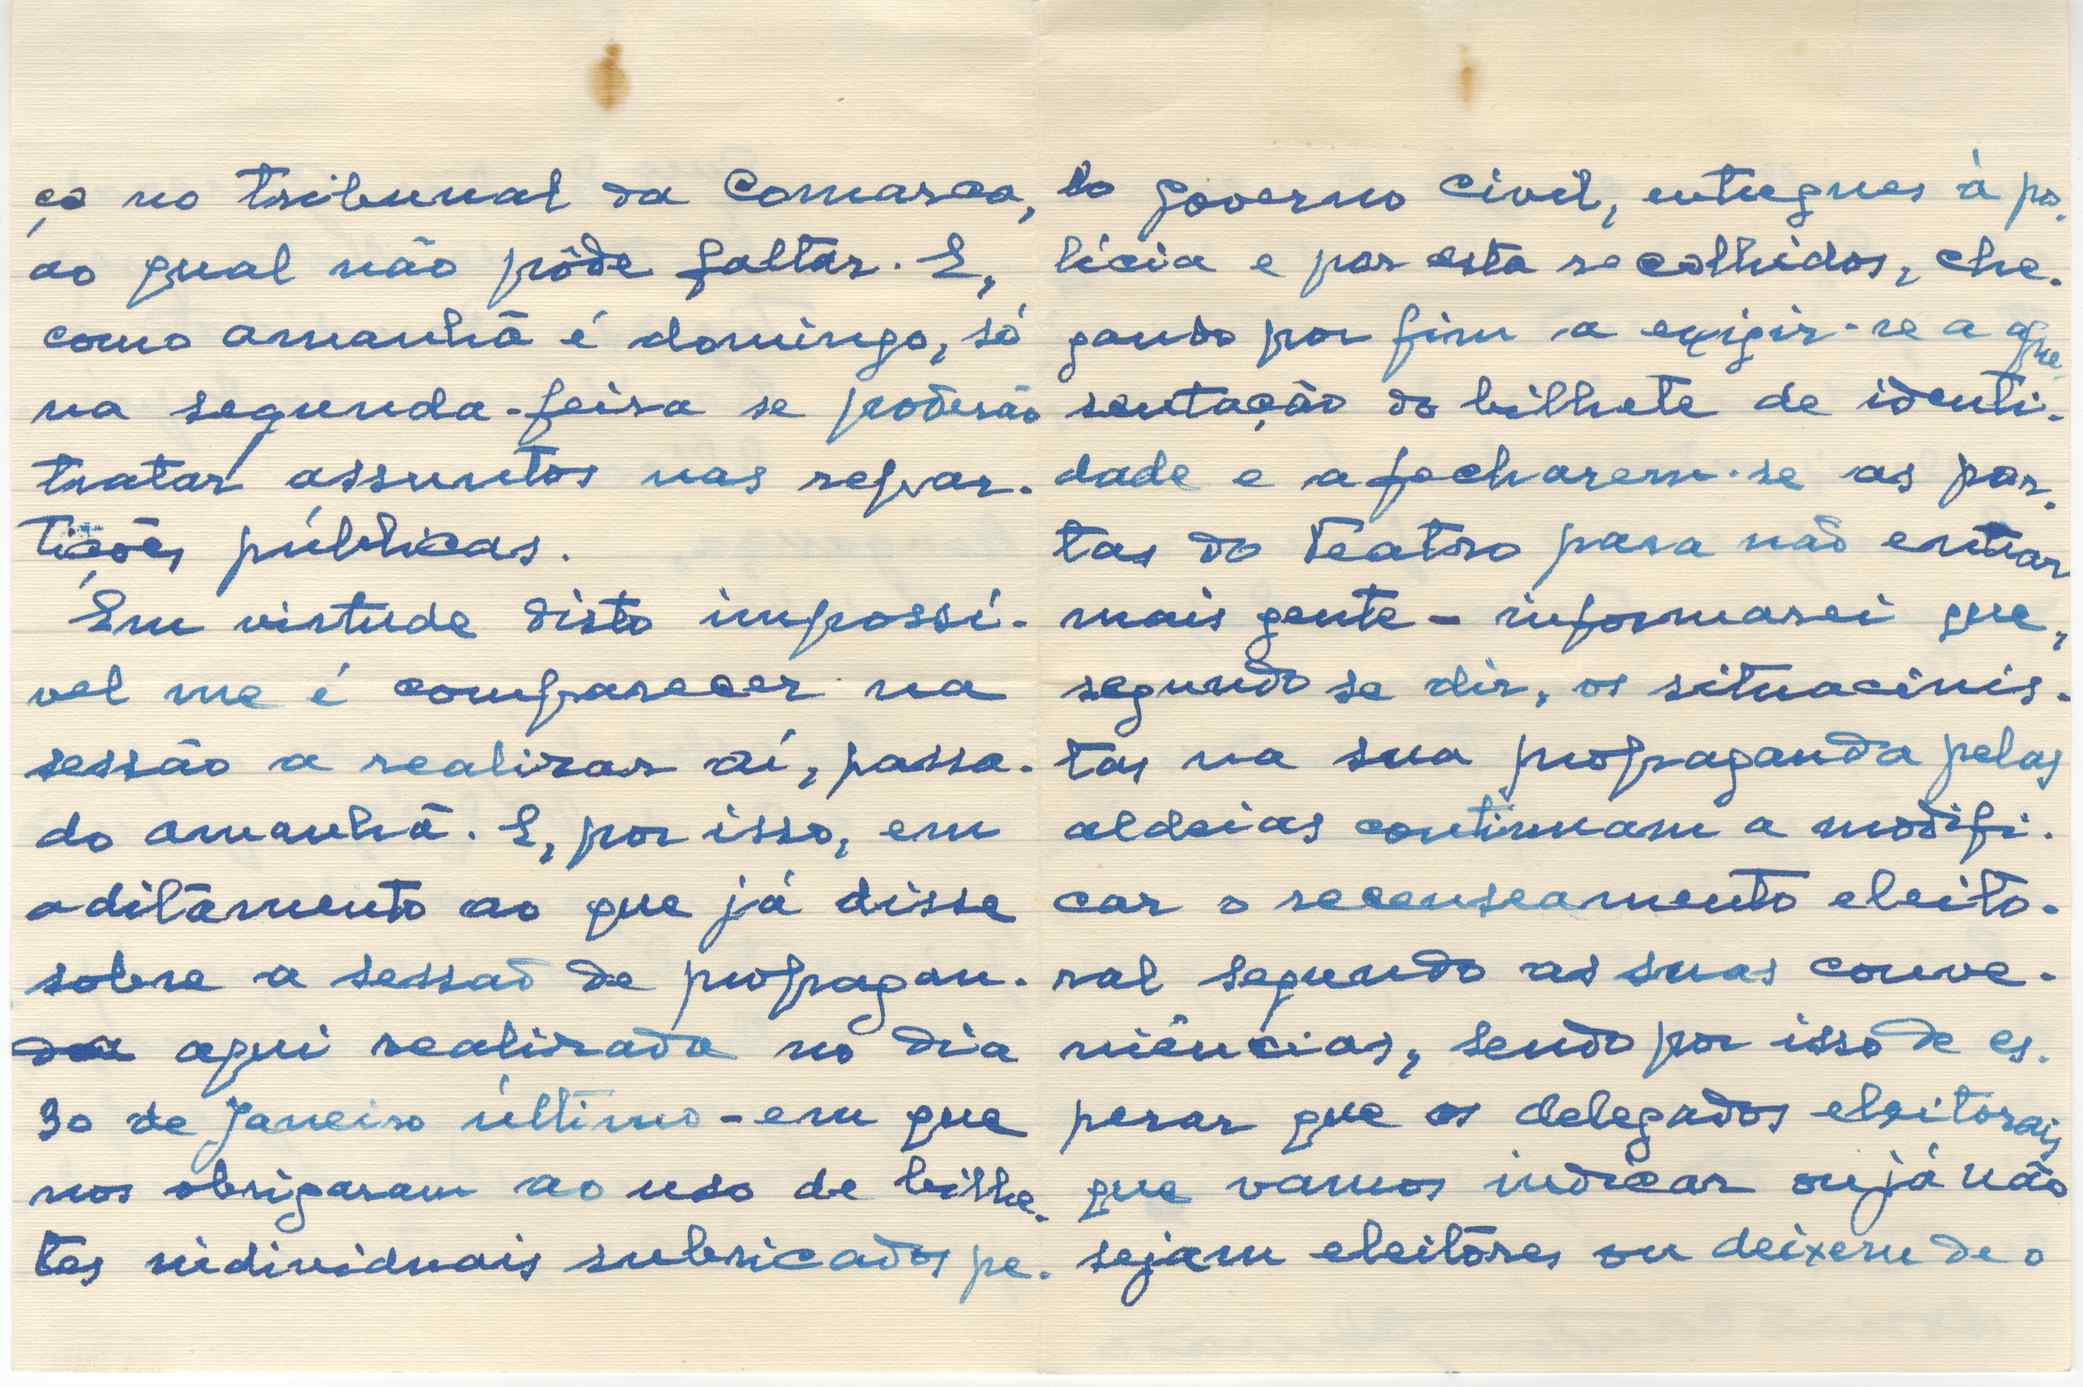 ça no tribunal da Comarca,
ao qual não pôde faltar. E,
como amanhã é domingo, só
na segunda-feira se poderão
tratar assuntos nas repar-
tições públicas.
Em virtude disto impossí-
vel me é comparecer na
sessão a realizar aí, passa-
do amanhã. E, por isso, em
aditamento ao que já disse
sobre a sessão de propagan-
da aqui realizada no dia
30 de Janeiro último - em que
nos obrigaram ao uso de bilhe-
tes individuais rubricados pe-
lo governo civil, entregues à po-
lícia e por esta recolhidos, che-
gando por fim a exigir-se a apre-
sentação do bilhete de identi-
dade e a fecharem-se as por-
tas do Teatro para não entrar
mais gente - informarei que,
segundo se diz, os situacinis-
tas na sua propaganda pelas
aldeias continuam a modifi-
car o recenseamento eleito-
ral segundo as suas conve-
niências, sendo por isso de es-
perar que os delegados eleitorais
que vamos indicar ou já não
sejam eleitôres ou deixem de o